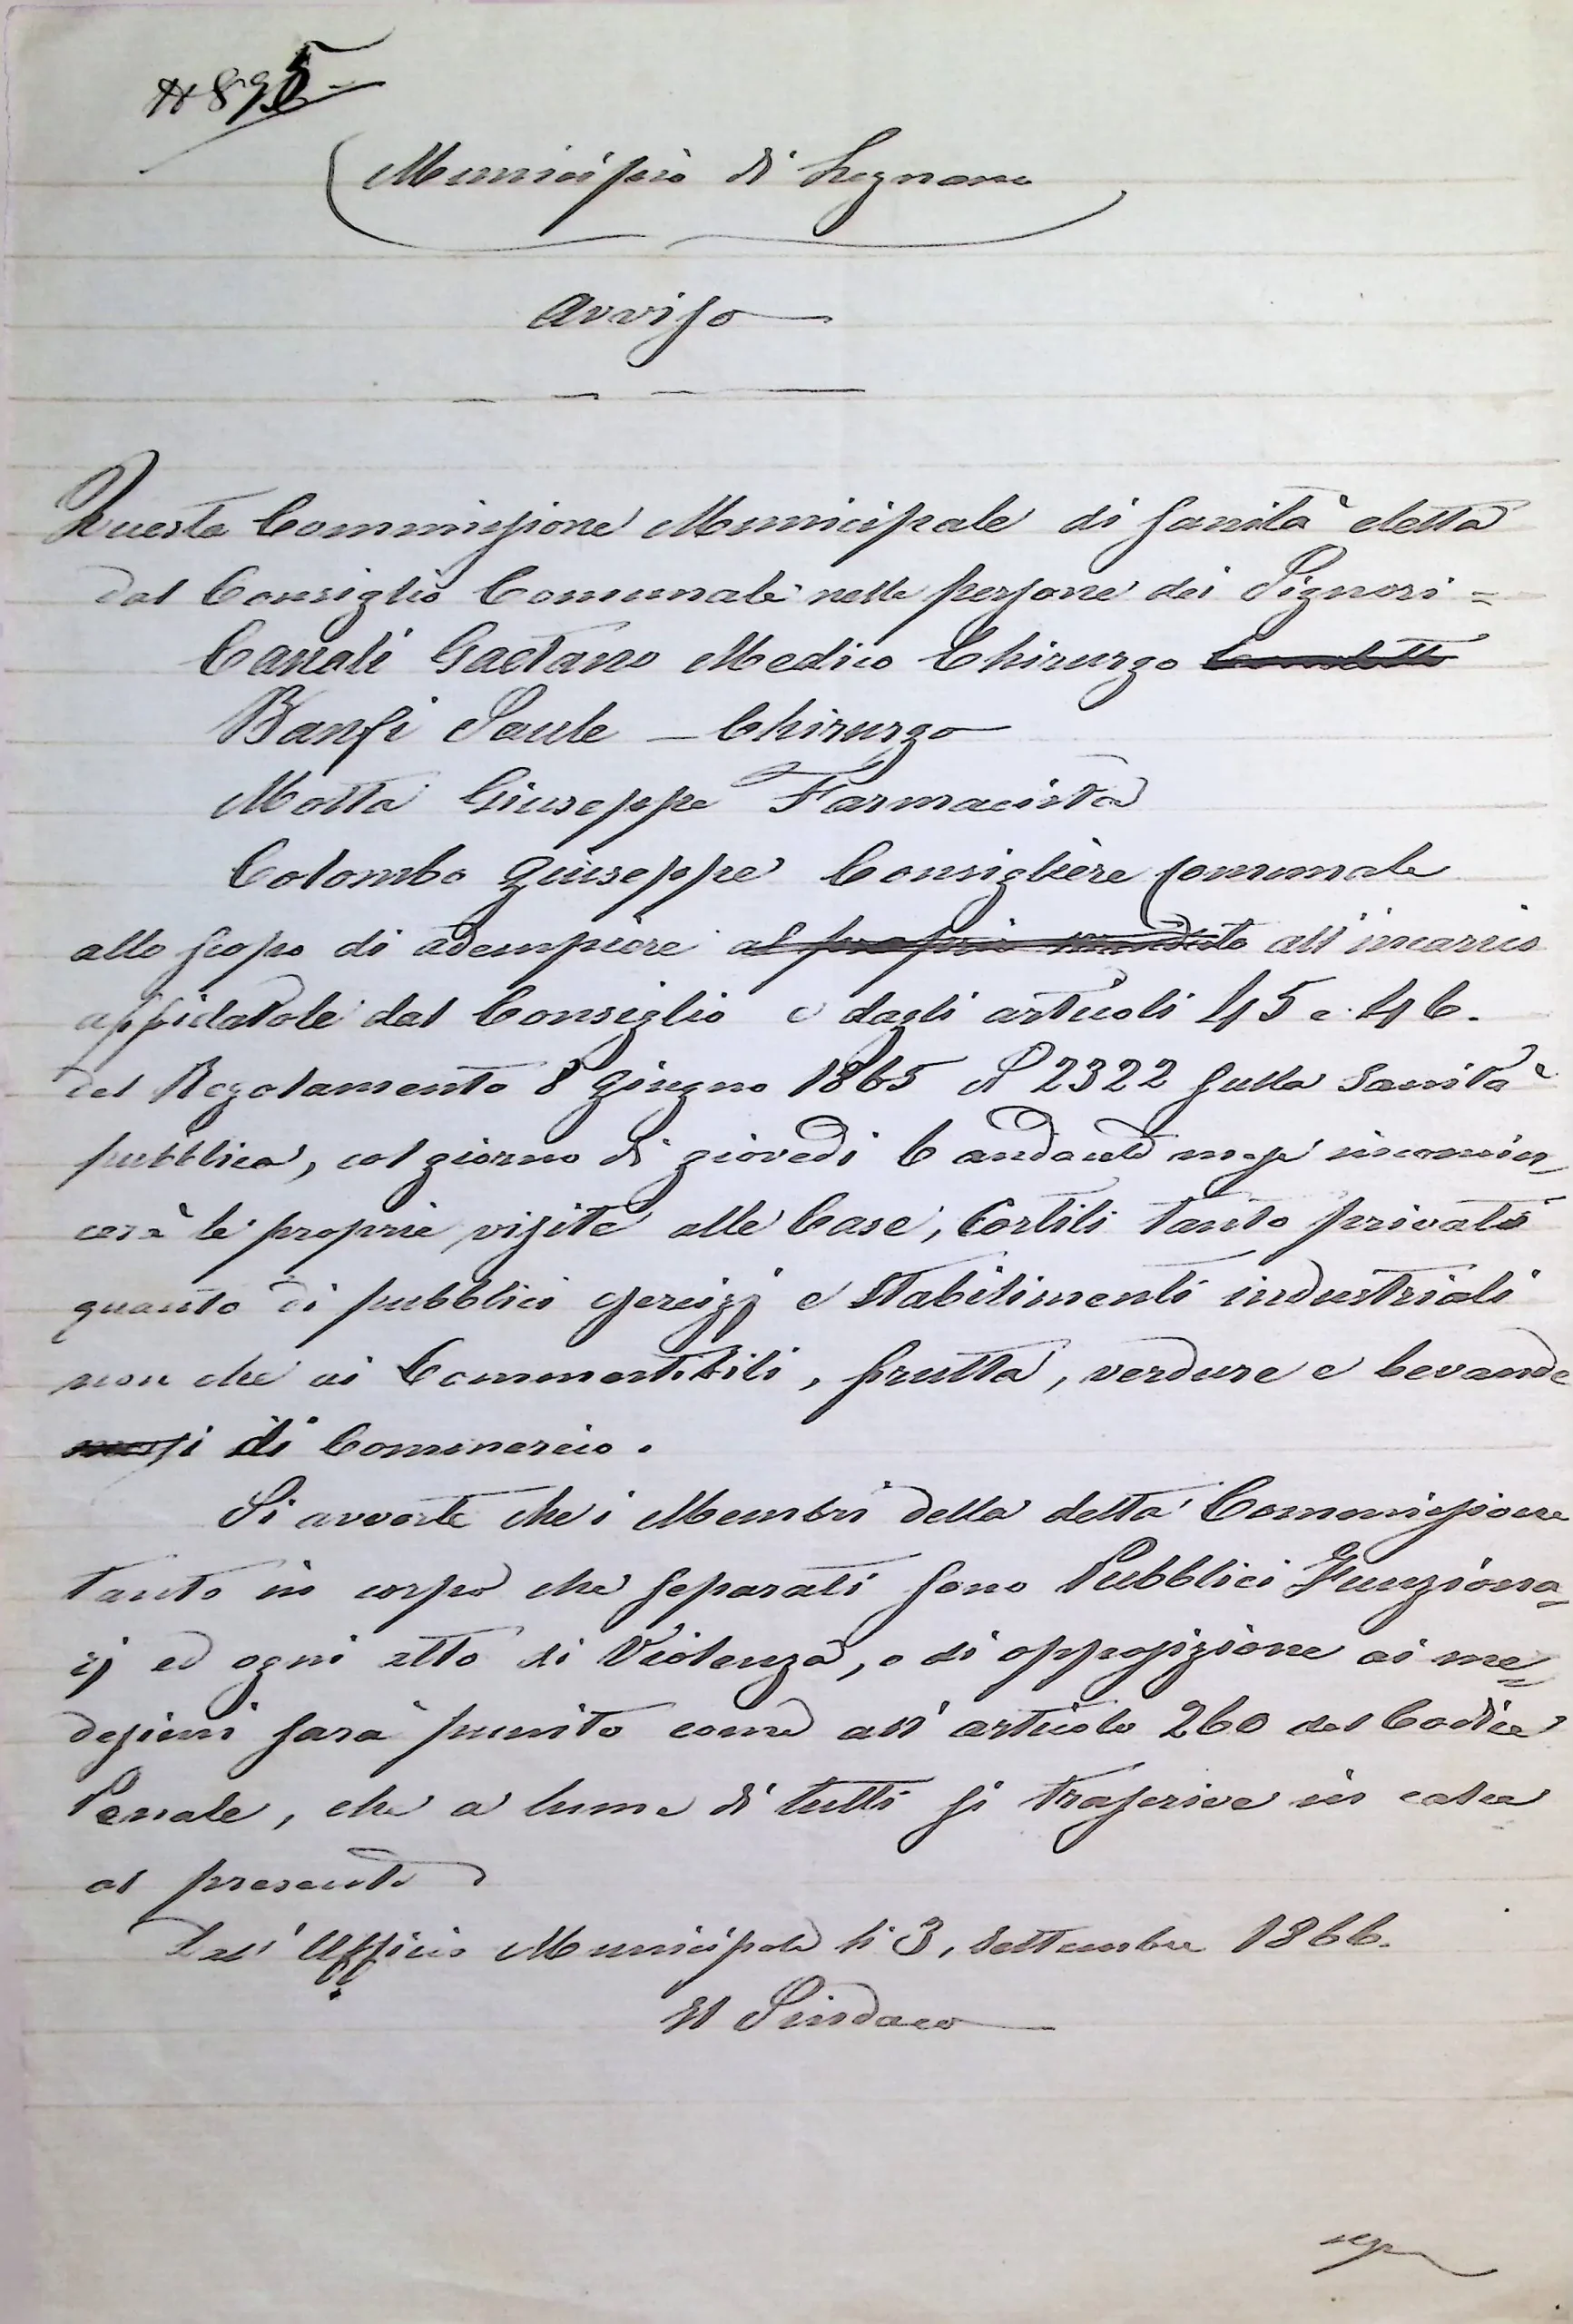 N 895
Municipio di Legnano
Avviso
Questa Commissione Municipale di Sanità eletta
dal Consiglio Comunale nelle persone dei Signori =
Canali Gaetano Medico Chirurgo Condotto
Banfi Saule – Chirurgo
Motta Giuseppe Farmacista
Colombo Giuseppe Consigliere Comunale
allo scopo di adempiere al proprio mandato all'incarico
affidatole dal Consiglio e dagli articoli 45 e 46.
del Regolamento 8 Giugno 1865 N 2322 sulla Sanità
pubblica, col giorno di giovedi 6 andante mese incomin
cerà le proprie visite alle Case, Cortili tanto privati
quanto di pubblici esercizj e Stabilimenti industriali
non che ai Commestibili, frutta, verdure e bevande
messi di Commercio.
Si avverte che i Membri della detta Commissione
tanto in corpo che separati sono Pubblici Funziona=
rj ed ogni atto di Violenza, o di opposizione ai me=
desimi sarà punito come all'articolo 260 del Codice
Penale, che a lume di tutti si trascrive in calce
al presente
Dall'Ufficio Municipale li 3, Settembre 1866.
Il Sindaco